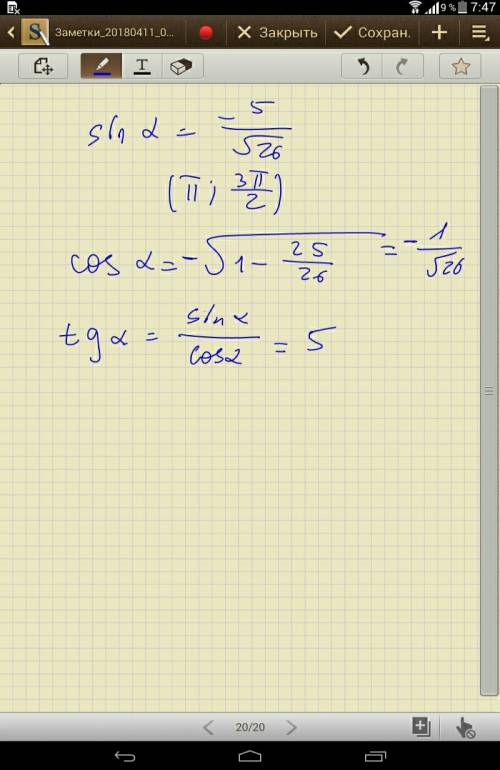 9% 7:47
Заметки_20180411_0... Закрыть Сохран.
T
sin α = -5/√26
(π; 3π/2)
cos α = -√(1 - 25/26) = -1/√26
tg α = sin α/cos α = 5
20/20